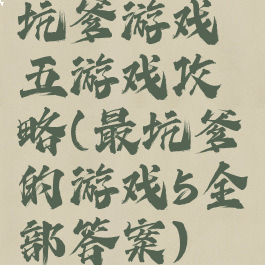 坑爹游戏
五游戏攻
略(最坑爹
的游戏5全
部答案)